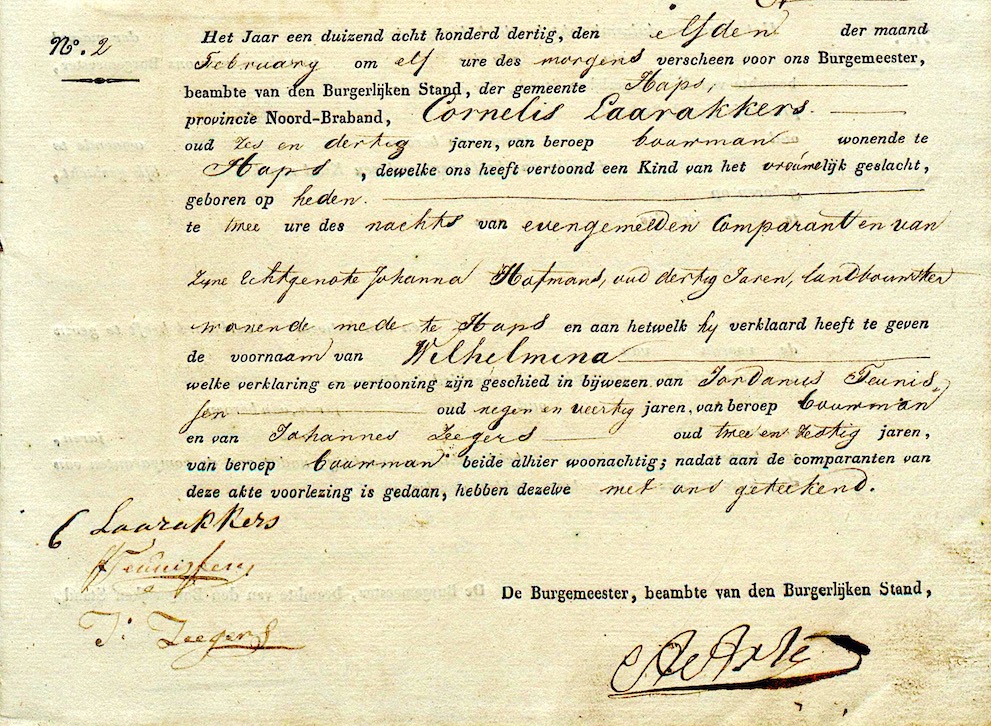 No. 2
Het Jaar een duizend acht honderd dertig, den elfden der maand
February om elf ure des morgens verscheen voor ons Burgemeester,
beambte van den Burgerlijken Stand, der gemeente Haps,
provincie Noord-Braband, Cornelis Laarakkers.
oud zes en dertig jaren, van beroep bouwman wonende te
Haps, dewelke ons heeft vertoond een Kind van het vrouwelijk geslacht,
geboren op heden.
te twee ure des nachts van evengemelden Comparant en van
zyne Echtgenote Johanna Hofmans, oud dertig Jaren, landbouwster
wonende mede te Haps en aan hetwelk hy verklaard heeft te geven
de voornaam van Wilhelmina
welke verklaring en vertooning zijn geschied in bijwezen van Jordanus Teunis-
sen oud negen en veertig jaren, van beroep bouwman
en van Johannes Zeegers oud twee en zestig jaren,
van beroep bouwman beide alhier woonachtig; nadat aan de comparanten van
deze akte voorlezing is gedaan, hebben dezelve met ons geteekend.
C Laarakkers
J Teunissen
J: Zeegers
De Burgemeester, beambte van den Burgerlijken Stand,